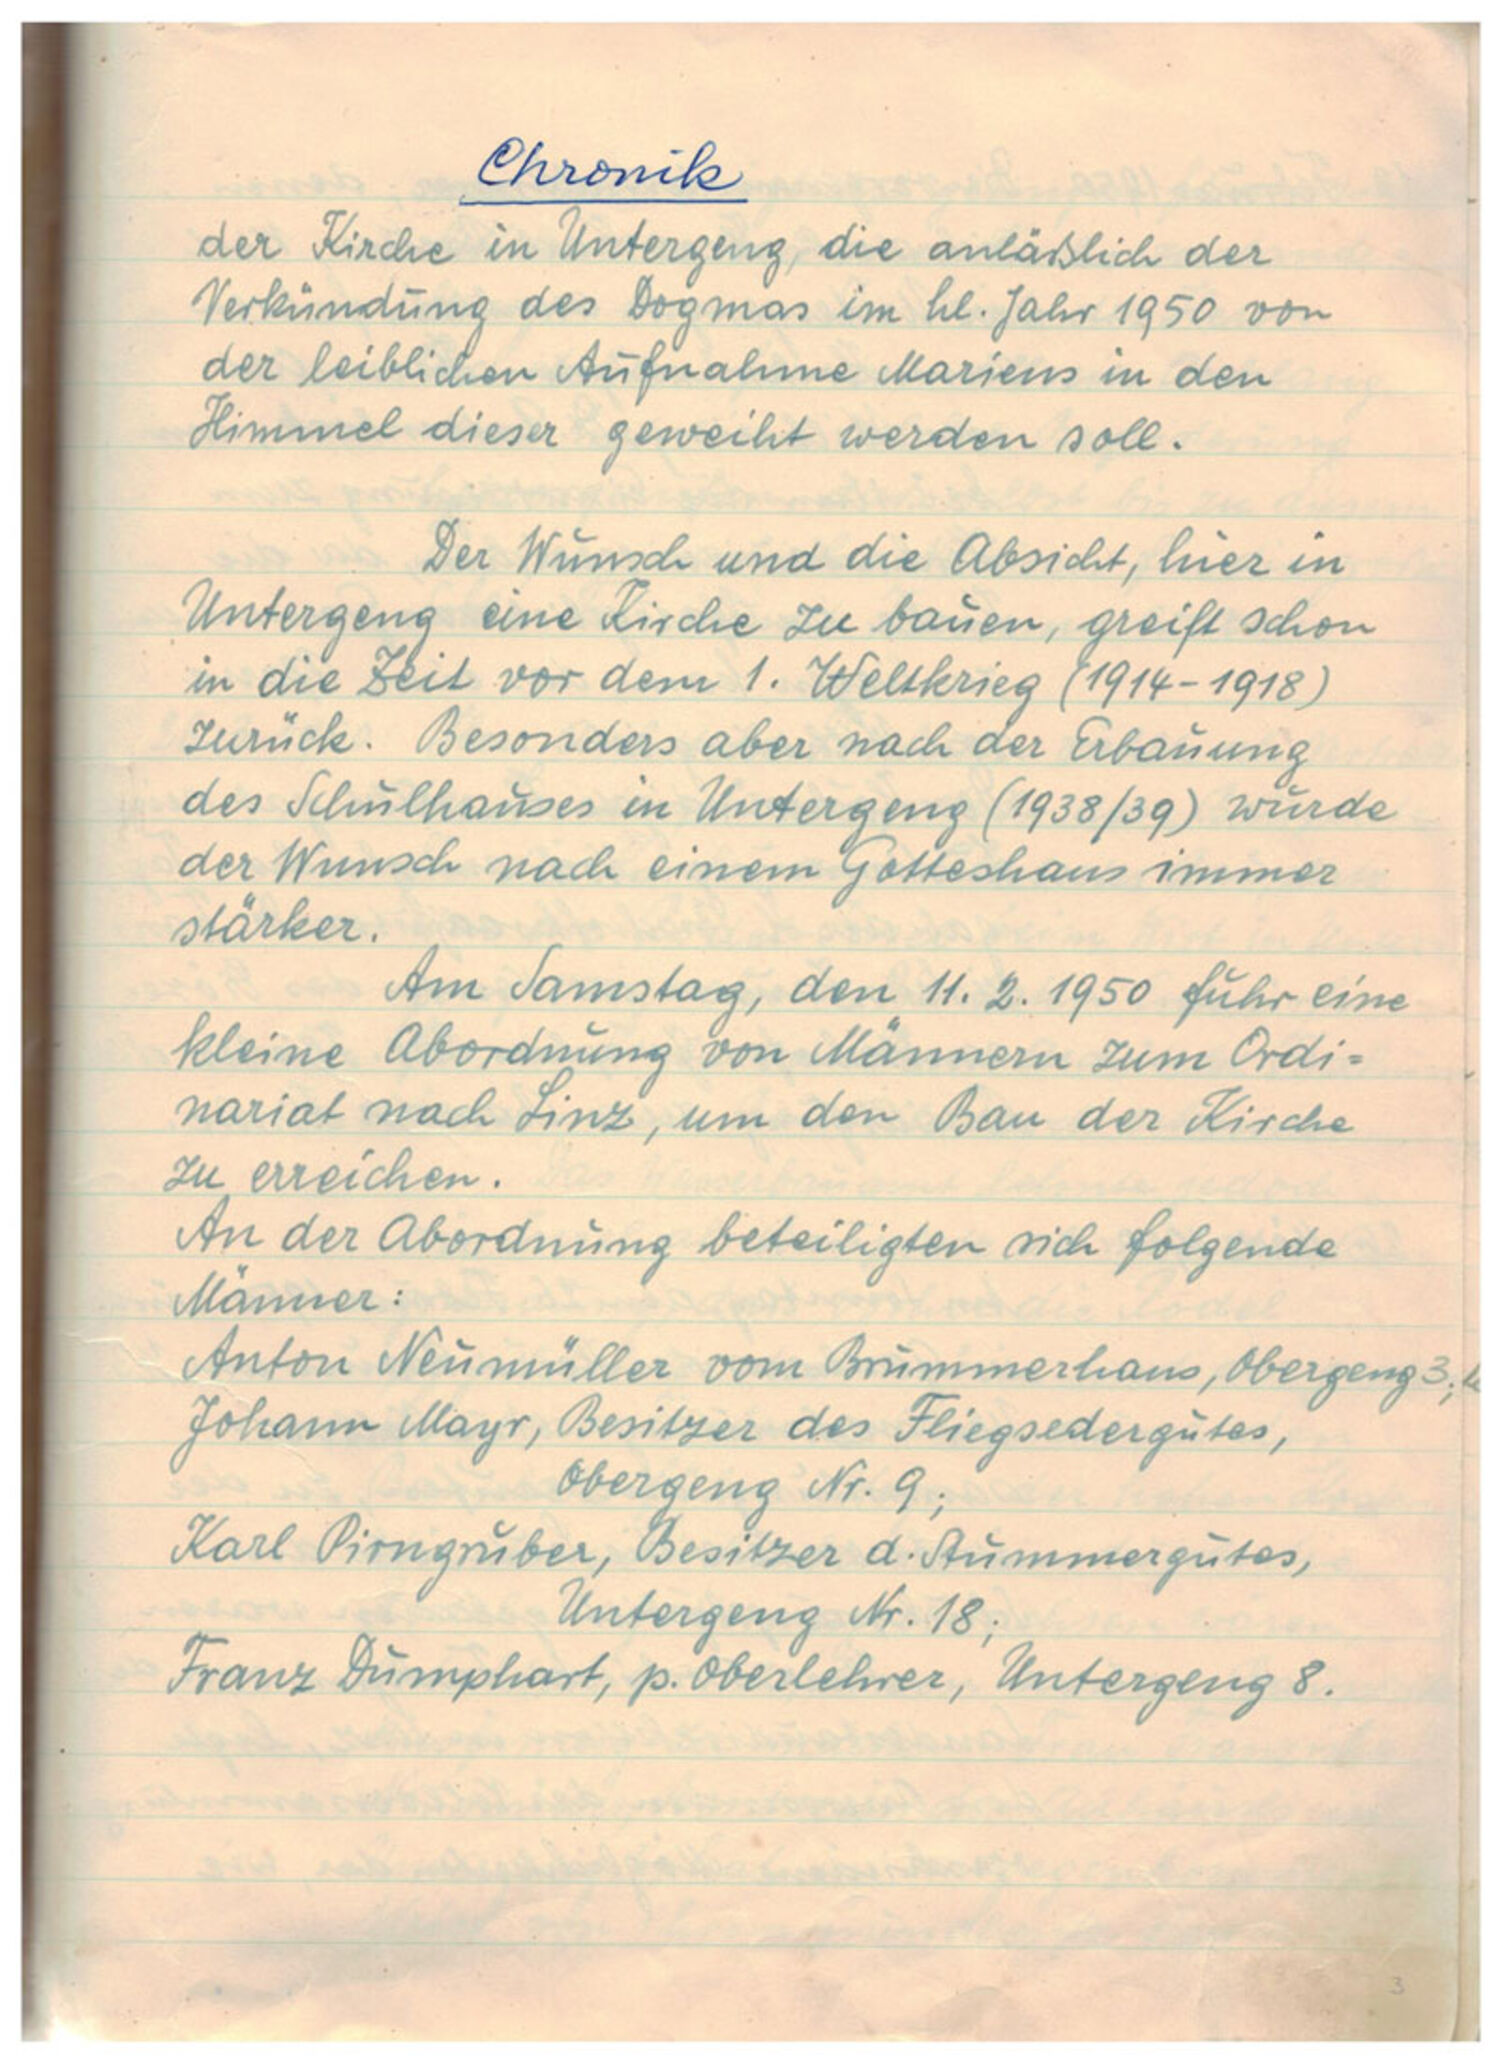 Chronik
der Kirche in Untergeng, die anläßlich der
Verkündung des Dogmas im hl. Jahr 1950 von
der leiblichen Aufnahme Mariens in den
Himmel dieser geweiht werden soll.
Der Wunsch und die Absicht, hier in
Untergeng eine Kirche zu bauen, greift schon
in die Zeit vor dem 1. Weltkrieg (1914-1918)
zurück. Besonders aber nach der Erbauung
des Schulhauses in Untergeng (1938/39) wurde
der Wunsch nach einem Gotteshaus immer
stärker.
Am Samstag, den 11. 2. 1950 fuhr eine
kleine Abordnung von Männern zum Ordi=
nariat nach Linz, um den Bau der Kirche
zu erreichen.
An der Abordnung beteiligten sich folgende
Männer:
Anton Neumüller vom Brummerhaus, Obergeng 3;
Johann Mayr, Besitzer des Fliegsedergutes,
Obergeng Nr. 9;
Karl Pirngruber, Besitzer d. Aummergutes,
Untergeng Nr. 18;
Franz Dumphart, p. Oberlehrer, Untergeng 8.
3